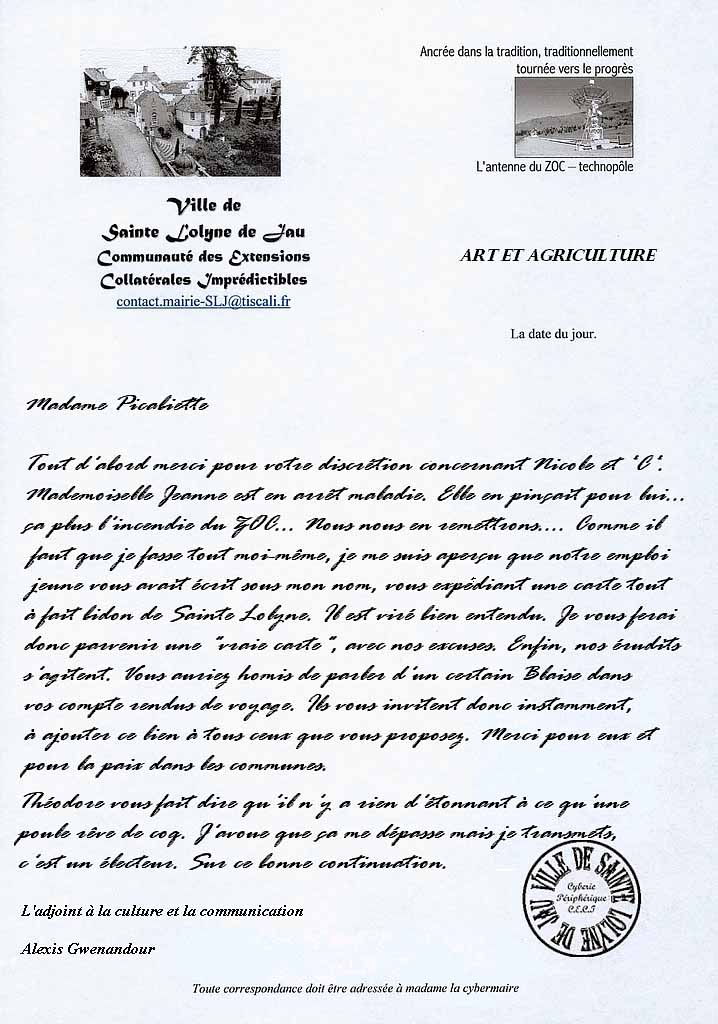 Ancrée dans la tradition, traditionnellement
tournée vers le progrès
L'antenne du ZOC – technopôle
Ville de
Sainte Lolyne de Jau
Communauté des Extensions
Collatérales Imprédictibles
contact.mairie-SLJ@tiscali.fr
ART ET AGRICULTURE
La date du jour.
Madame Picabiette
Tout d'abord merci pour votre discrétion concernant Nicole et "C".
Mademoiselle Jeanne est en arrêt maladie. Elle en pinçait pour lui...
ça plus l'incendie du ZOC... Nous nous en remettrons.... Comme il
faut que je fasse tout moi-même, je me suis aperçu que notre emploi
jeune vous avait écrit sous mon nom, vous expédiant une carte tout
à fait bidon de Sainte Lolyne. Il est viré bien entendu. Je vous ferai
donc parvenir une "vraie carte", avec nos excuses. Enfin, nos érudits
s'agitent. Vous auriez homis de parler d'un certain Blaise dans
vos compte rendus de voyage. Ils vous invitent donc instamment,
à ajouter ce lien à tous ceux que vous proposez. Merci pour eux et
pour la paix dans les communes.
Théodore vous fait dire qu'il n'y a rien d'étonnant à ce qu'une
poule rêve de coq. J'avoue que ça me dépasse mais je transmets,
c'est un électeur. Sur ce bonne continuation.
L'adjoint à la culture et la communication
Alexis Gwenandour
VILLE DE SAINTE LOLYNE DE JAU
Cyberie
Périphérique
C.E.C.I
Toute correspondance doit être adressée à madame la cybermaire